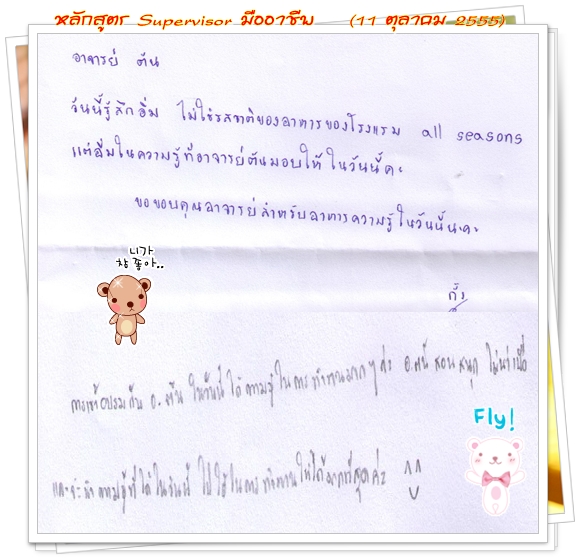 หลักสูตร Supervisor มืออาชีพ (11 ตุลาคม 2555)
อาจารย์ ตัน
วันนี้รู้สึกอิ่ม ไม่ใช่รสชาติของอาหารของโรงแรม all seasons
แต่อิ่มในความรู้ที่อาจารย์ตันมอบให้ในวันนี้ค่ะ
ขอขอบคุณอาจารย์สำหรับอาหารความรู้ในวันนี้นะคะ
니가
참 좋아..
กุ้ง
การเข้าอบรมกับ อ.ตัน ในวันนี้ ได้ความรู้ในการทำงานมากๆ ค่ะ อ.ตัน สอนสนุก ไม่น่าเบื่อ
Fly!
และจะนำความรู้ที่ได้ในวันนี้ ไปใช้ในการทำงานให้ได้มากที่สุดค่ะ ^^